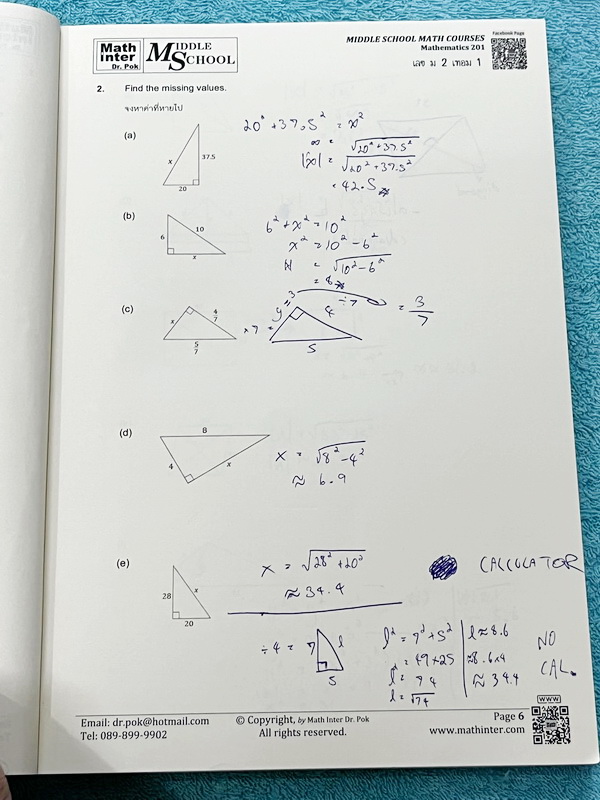 Math inter Dr. Pok
MIDDLE SCHOOL
MIDDLE SCHOOL MATH COURSES
Mathematics 201
เลข ม 2 เทอม 1
Facebook Page
2. Find the missing values.
จงหาค่าที่หายไป
(a)
x
37.5
20
20² + 37.5² = x²
x = √20² + 37.5²
|x| = √20² + 37.5²
= 42.5
(b)
6
10
x
6² + x² = 10²
x² = 10² - 6²
= √10² - 6²
= 8
(c)
x
4/7
5/7
× 7 =
y = 3
4
5
÷ 7
= 3/7
(d)
8
4
x
x = √8² - 4²
≈ 6.9
(e)
28
x
20
x = √28² + 20²
≈ 34.4
CALCULATOR
÷ 4 =
7
l
5
l² = 7² + 5²
= 49 + 25
l² = 74
l = √74
l ≈ 8.6
≈ 8.6 × 4
≈ 34.4
NO CAL.
WWW
Email: dr.pok@hotmail.com
Tel: 089-899-9902
© Copyright, by Math Inter Dr. Pok
All rights reserved.
Page 6
www.mathinter.com